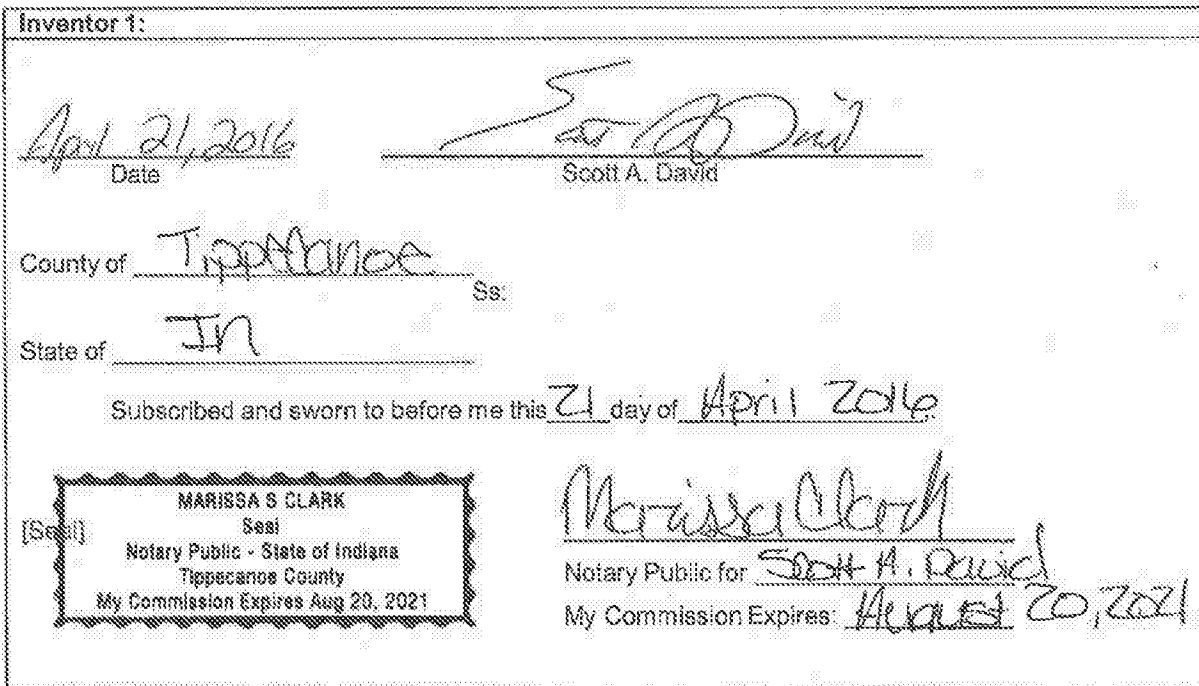 Inventor 1:
April 21, 2016
Scott A. David
Date
Scott A. David
County of Tippecanoe
Ss:
State of In
Subscribed and sworn to before me this 21 day of April 2016
[Seal]
MARISSA S CLARK
Seal
Notary Public - State of Indiana
Tippecanoe County
My Commission Expires Aug 20, 2021
Marissa Clark
Notary Public for Scott A. David
My Commission Expires: August 20, 2021